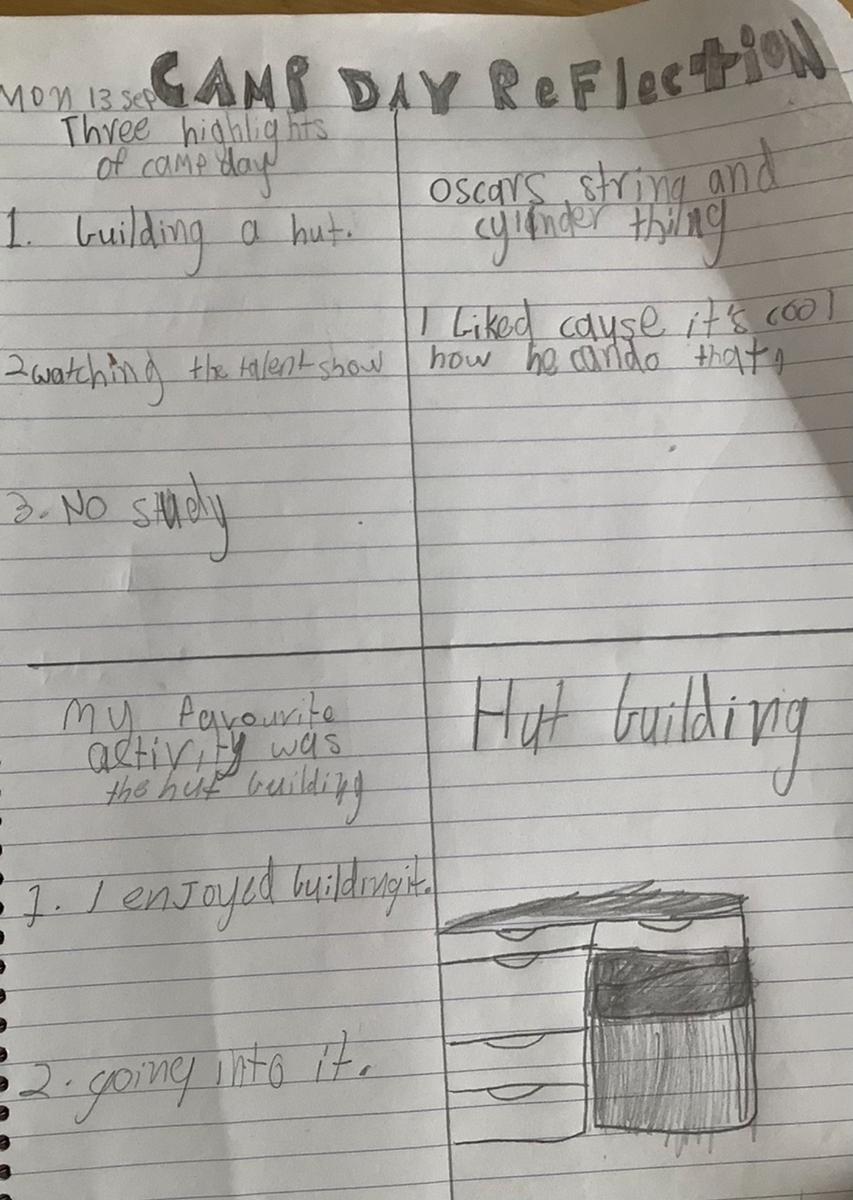 MON 13 sep CAMP DAY ReFlection
Three highlights
of camp day
1. building a hut.
2 watching the talent show
3. No study
oscars string and
cylinder thing
I liked cause it's cool
how he can do that,
My favourite
activity was
the hut building
1. I enjoyed building it.
2. going into it.
Hut building